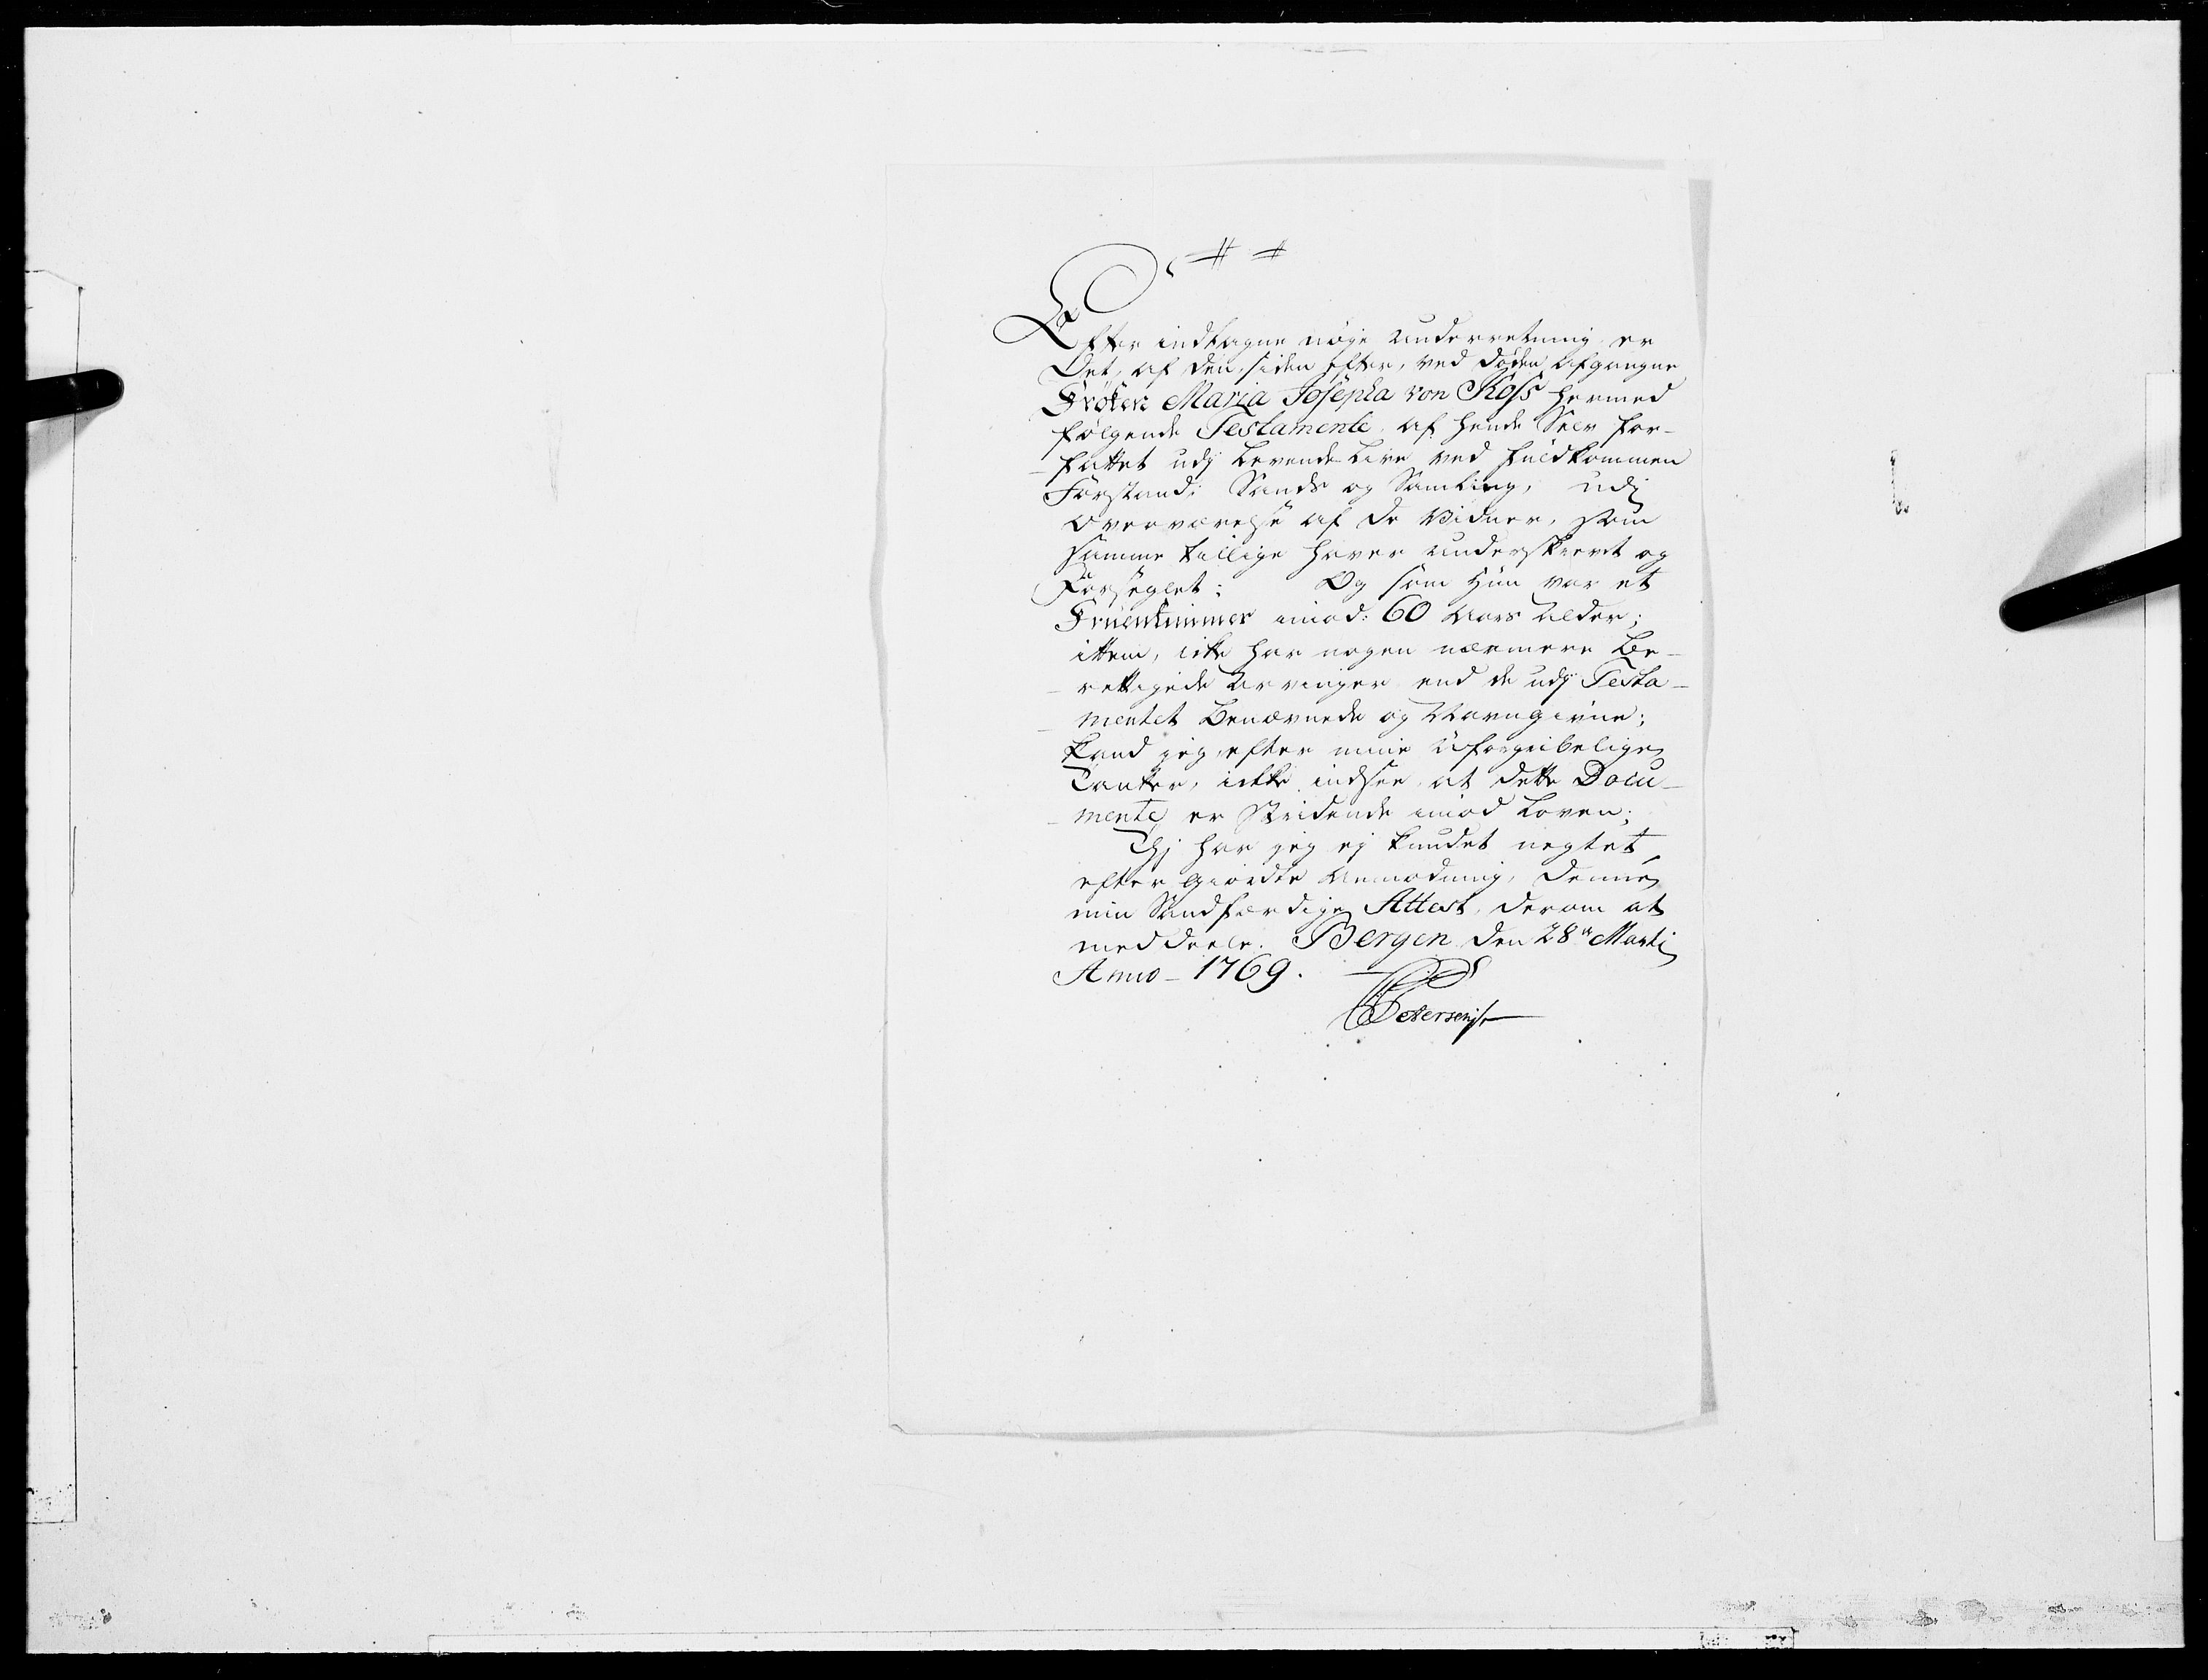 Efter indtagne nøye underretning er
Det, af den, siden efter, ved døden afgangne
Frøken Maria Josepha von Koss hermed
følgende Testamente af hende Selv for-
-fattet udj Levende Live ved fuldkommen
Forstand, Sands og Samling, udj
Overværelse af de Vidner, som
samme tillige haver underskrevt og
Forseglet: Og som Hun var et
Fruentimmer imod: 60 Aars Alder;
ittem, icke har nogen nærmere Be-
-rettigede Arvinger end de udj Testa-
-mentet Benævnede og Navngivne;
kand jeg, efter mine uforgribelige
Tanker, ickke indsee, at dette Docu-
-mente er Stridende imod Loven;
Thj har jeg ej kundet negtet,
efter giordte Anmodning, denne
min Sandfærdige Attest, derom at
meddeele. Bergen den 28de Martj
Anno - 1769.
Petersen